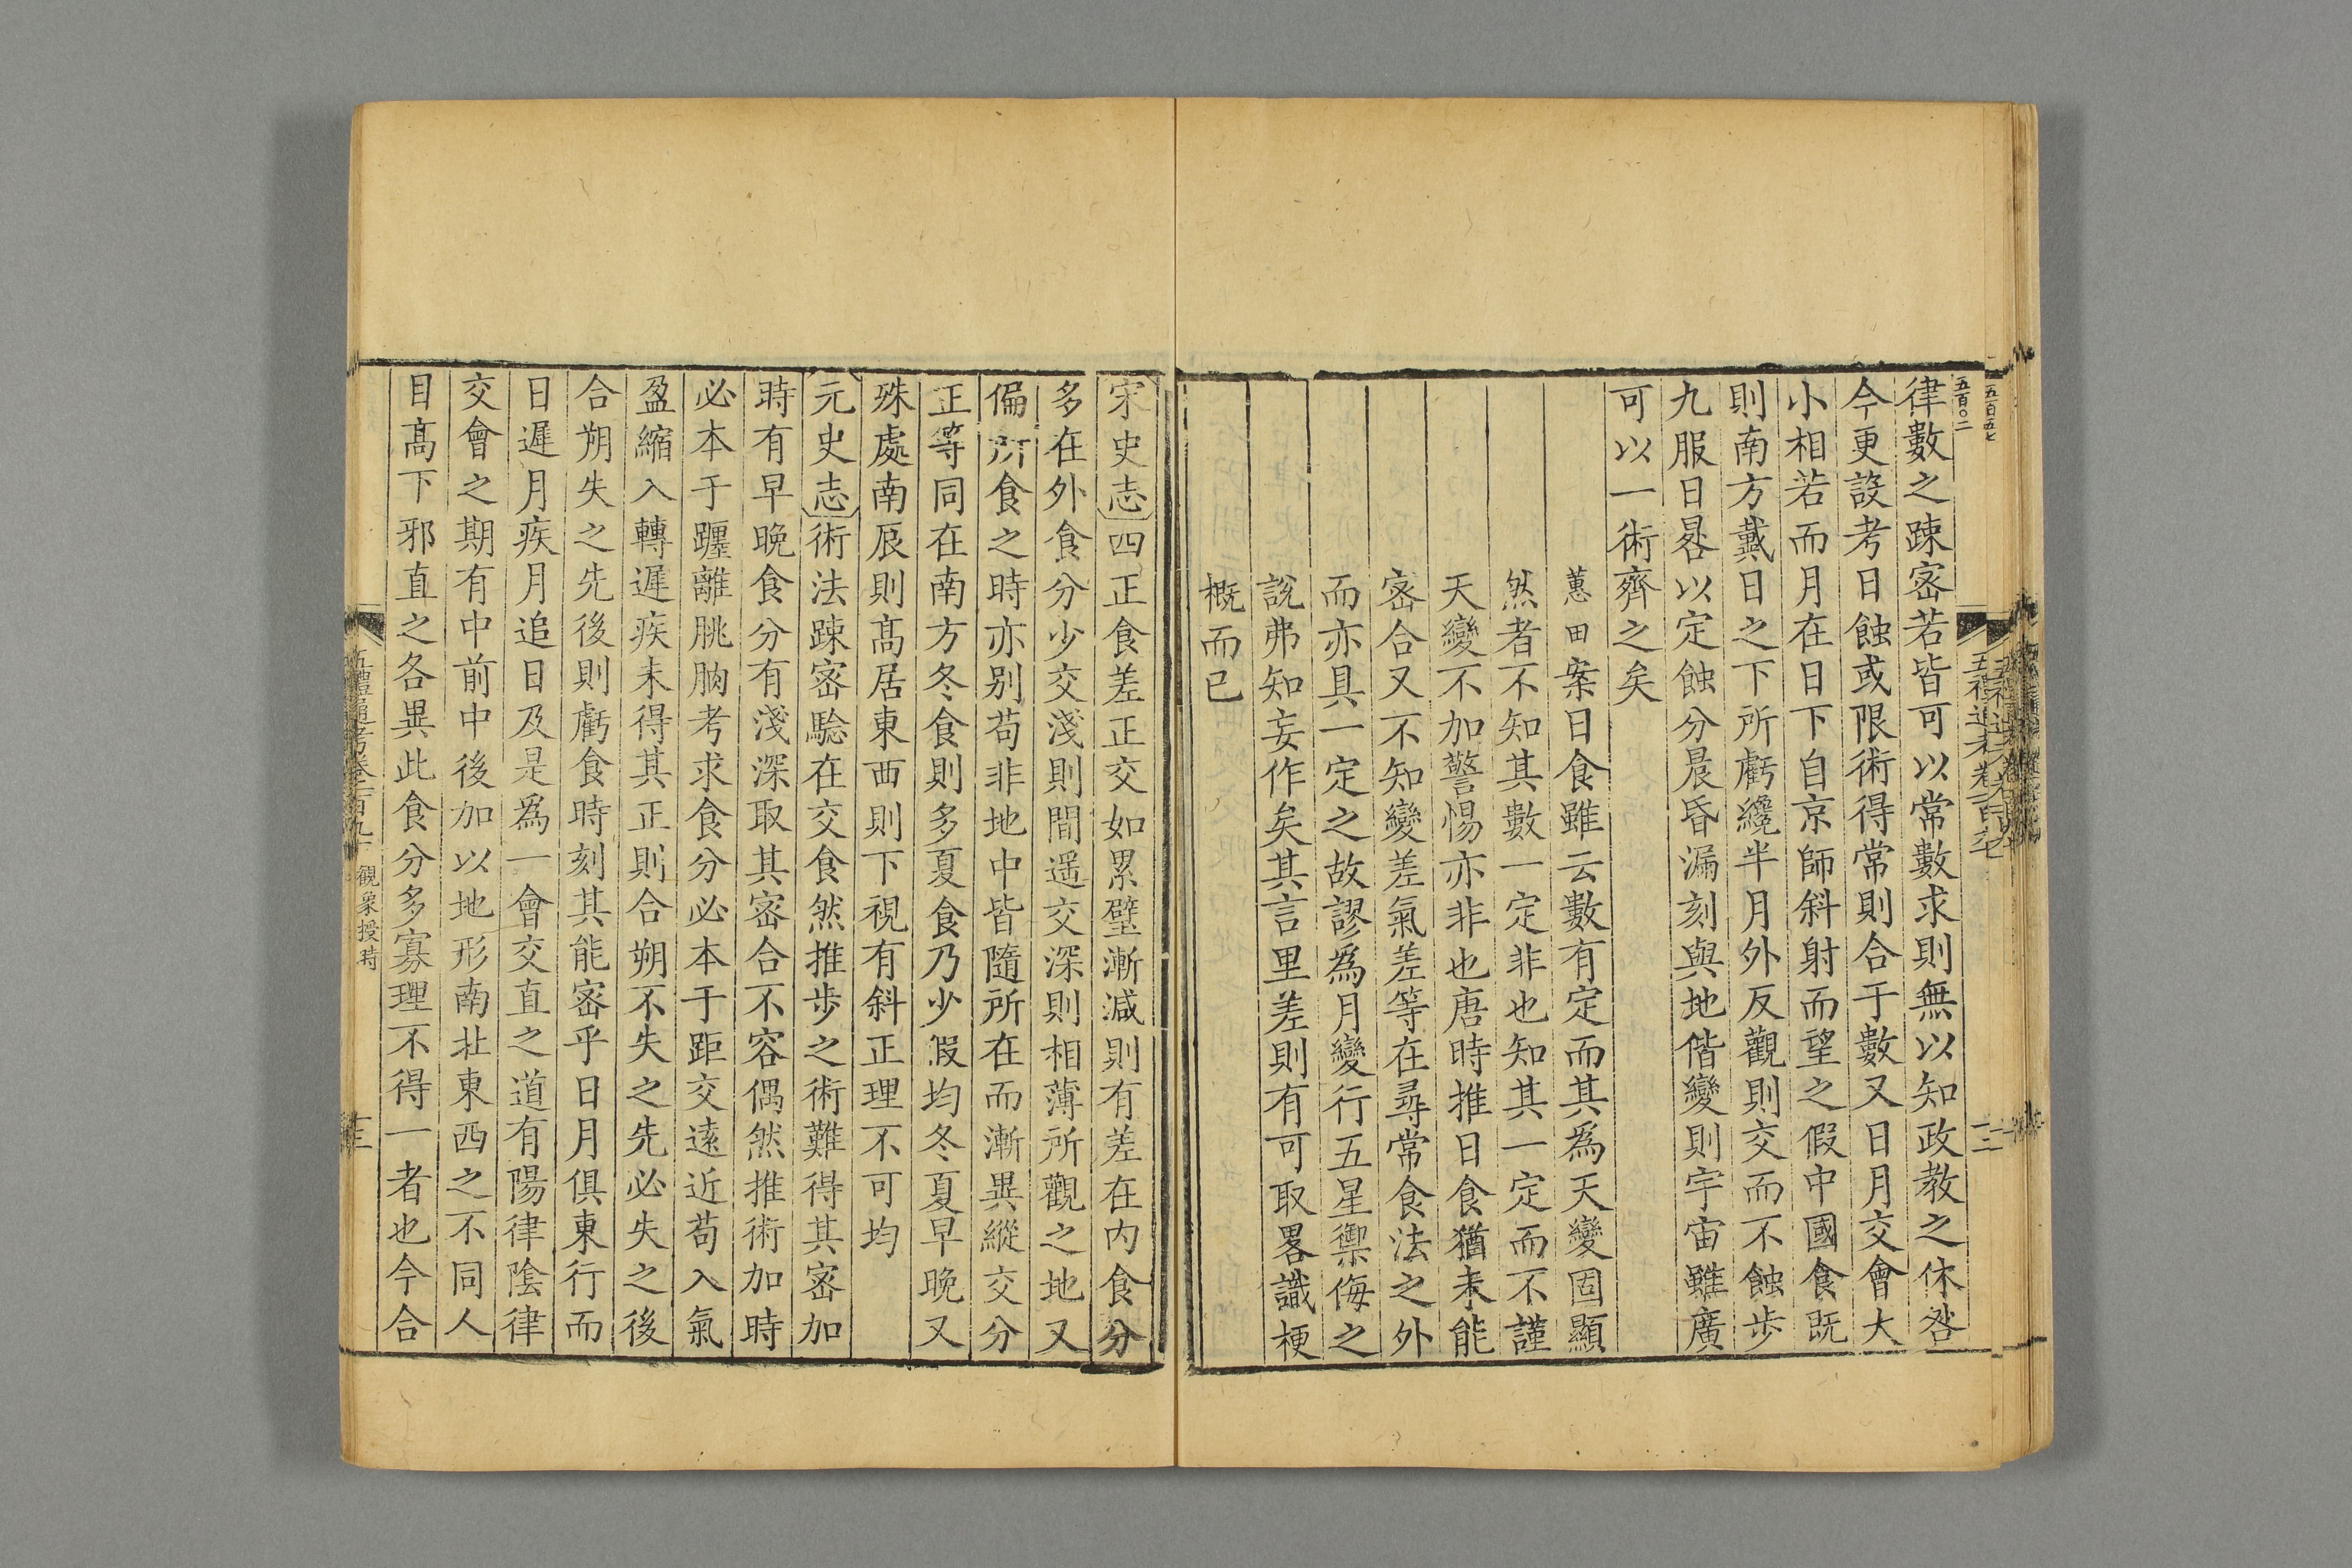 律數之踈宻若皆可以常數求則無以知政教之休咎
今更設考日蝕或限術得常則合于數又日月交會大
小相若而月在日下自京師斜射而望之假中國食既
則南方戴日之下所虧纔半月外反觀則交而不蝕步
九服日晷以定蝕分晨昏漏刻與地偕變則宇宙雖廣
可以一術齊之矣
蕙田案日食雖云數有定而其爲天變固顯
然者不知其數一定非也知其一定而不謹
天變不加警惕亦非也唐時推日食猶未能
宻合又不知變差氣差等在尋常食法之外
而亦具一定之故謬爲月變行五星禦侮之
說弗知妄作矣其言里差則有可取畧識梗
概而已
宋史志四正食差正交如累璧漸減則有差在内食分
多在外食分少交淺則間遥交深則相薄所觀之地又
偏所食之時亦别苟非地中皆隨所在而漸異縱交分
正等同在南方冬食則多夏食乃少假均冬夏早晚又
殊處南辰則髙居東西則下視有斜正理不可均
元史志術法踈宻驗在交食然推步之術難得其宻加
時有早晚食分有淺深取其宻合不容偶然推術加時
必本于躔離朓朒考求食分必本于距交逺近苟入氣
盈縮入轉遲疾未得其正則合朔不失之先必失之後
合朔失之先後則虧食時刻其能宻乎日月俱東行而
日遲月疾月追日及是爲一會交直之道有陽律陰律
交會之期有中前中後加以地形南北東西之不同人
目髙下邪直之各異此食分多寡理不得一者也今合
五禮通考卷一百九十 觀象授時